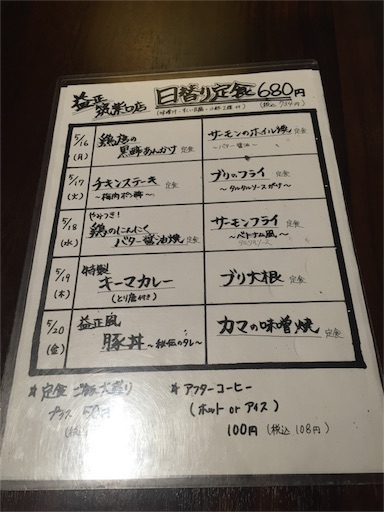 益正
筑紫口店
日替り定食 680円
(税込 734円)
5/16
(月)
鶏唐の
黒酢あんかけ 定食
サーモンのホイル焼 定食
~バター醤油~
5/17
(火)
チキンステーキ 定食
~梅肉ポン酢~
ブリのフライ 定食
~タルタルソースがけ~
5/18
(水)
やみつき!
鶏のにんにく
バター醤油焼 定食
サーモンフライ 定食
~ベトナム風~
5/19
(木)
特製
キーマカレー
(とり唐付き)
ブリ大根 定食
5/20
(金)
益正風
豚丼 ~秘伝のタレ~
カマの味噌焼 定食
★ 定食 ご飯大盛り
プラス 50円
★ アフターコーヒー
(ホット or アイス)
100円 (税込 108円)